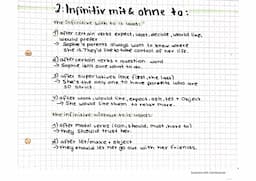 2. Infinitiv mit & ohne to:
the infinitive with to is used:
1) after certain verbs expect, want, decide, would like,
would prefer
→ Sophie's parents always want to know where
she is. They'd like to take control of her life.
2) after certain verbs + question word
→ Sophie isn't sure what to do.
3) after superlatives (the first, the last)
→ She's the only one to have parents who are
so strict.
4) after want, would like, expect, ask, tell + Object
→ She would like them to relax more.
the infinitive without to is used:
1) after modal verbs (can, should, must, have to)
→ they should trust her.
2) after let/make + object
→ they should let her go out with her friends.